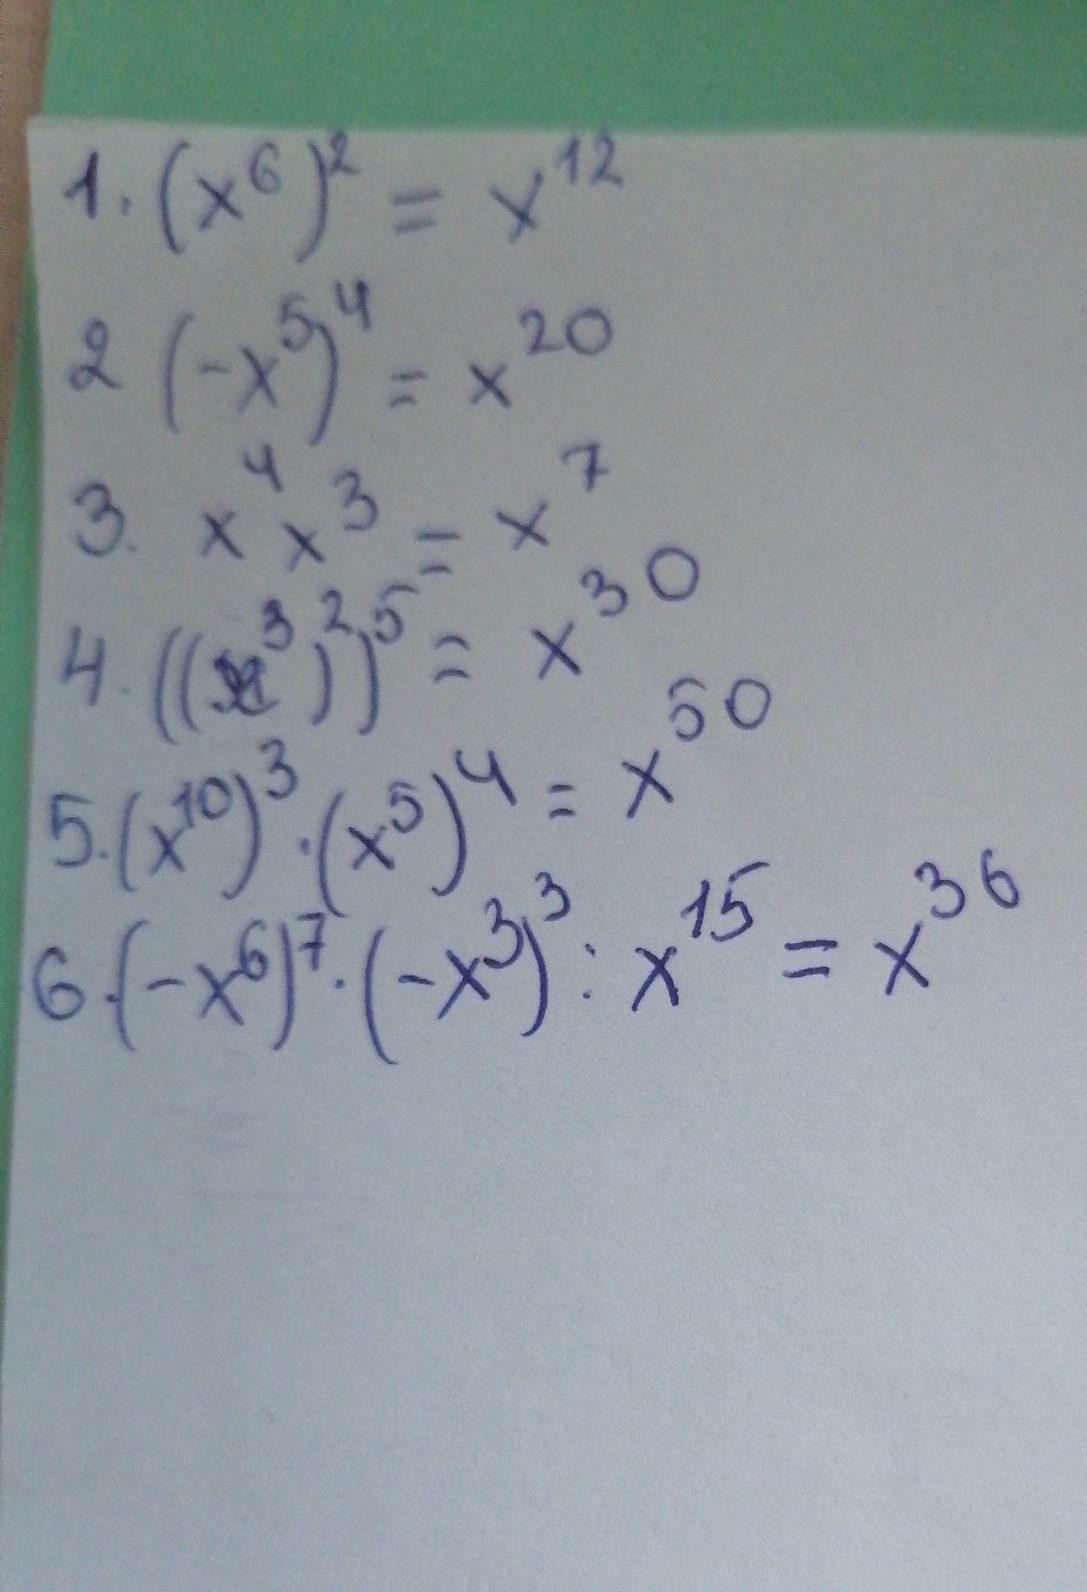 1. (x⁶)² = x¹²
2 (-x⁵)⁴ = x²⁰
3. x⁴x³ = x⁷
4. ((x³)²)⁵ = x³⁰
5. (x¹⁰)³ · (x⁵)⁴ = x⁵⁰
6. (-x⁶)⁷ · (-x³)³ : x¹⁵ = x³⁶